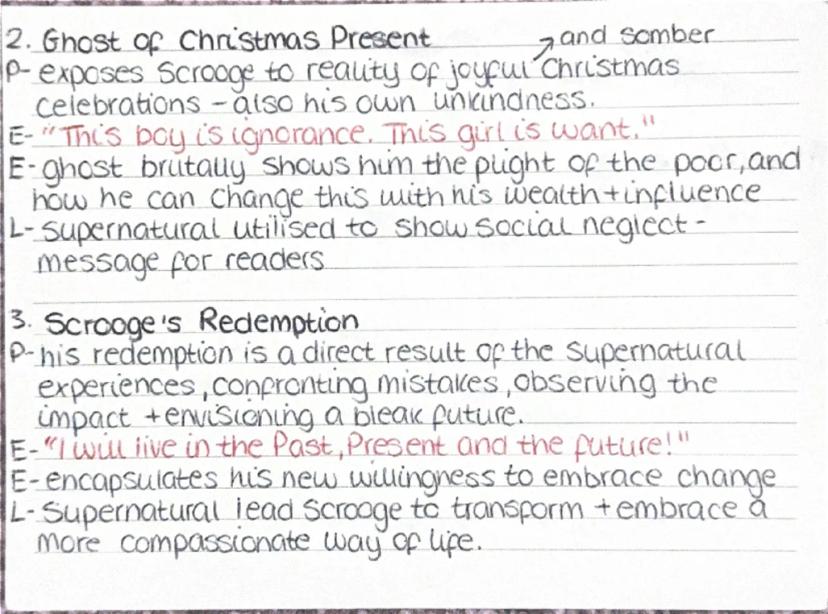 2. Ghost of Christmas Present ↗and somber
P- exposes Scrooge to reality of joyful Christmas
celebrations - also his own unkindness.
E- "This boy is ignorance. This girl is want."
E- ghost brutally shows him the plight of the poor, and
how he can change this with his wealth + influence
L- supernatural utilised to show social neglect -
message for readers
3. Scrooge's Redemption
P- his redemption is a direct result of the supernatural
experiences, confronting mistakes, observing the
impact + envisioning a bleak future.
E- "I will live in the Past, Present and the future!"
E- encapsulates his new willingness to embrace change
L- Supernatural lead Scrooge to transform + embrace a
more compassionate way of life.